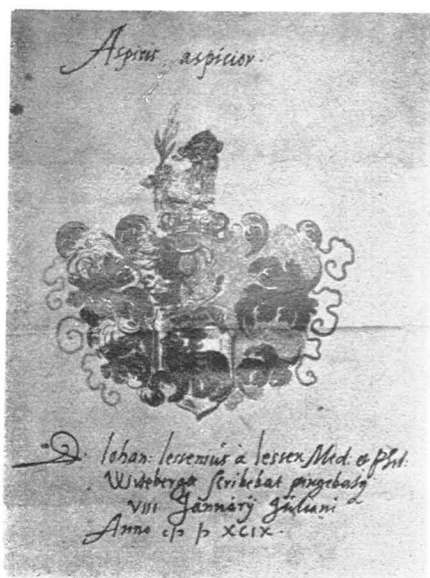 Aspicis, aspicior.
D. Iohan: Iessenius à Iessen Med. & Phil:
Witebergæ scribebat pingebatq
VIII Januarÿ Juliani
Anno cIɔ Iɔ XCIX.